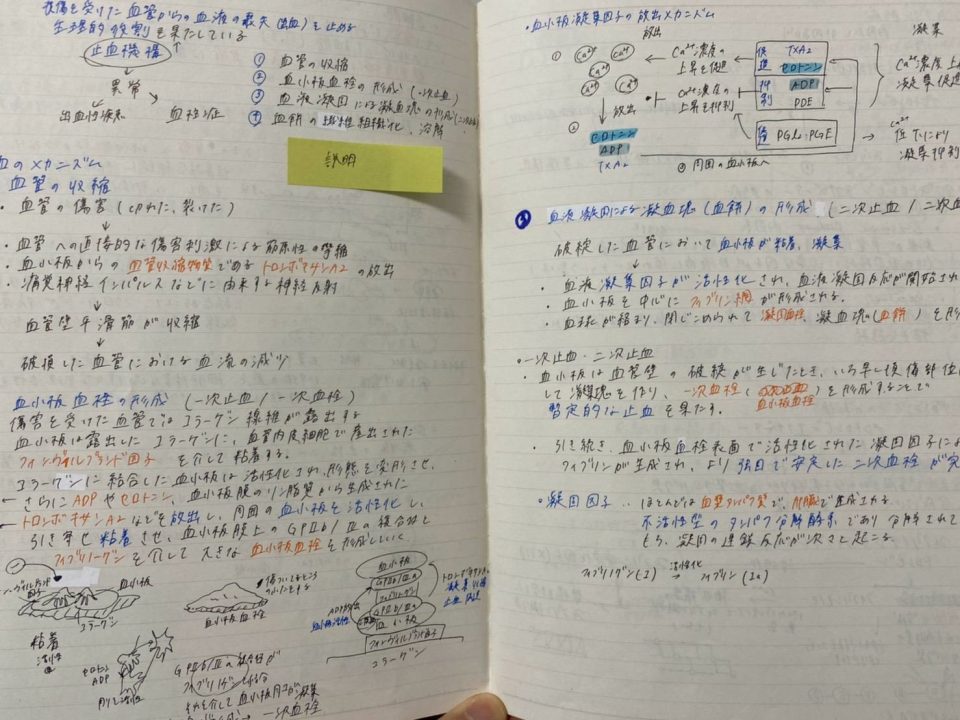 損傷を受けた血管からの血液の喪失(出血)を止める
生理的役割を果たしている
止血機構
↓
異常
出血性疾患 血栓症
① 血管の収縮
② 血小板血栓の形成 (一次止血)
③ 血液凝固による凝血塊の形成(二次止血)
④ 血餅の線維組織化、溶解
説明
血のメカニズム
血管の収縮
・血管の傷害 (切れた、裂けた)
↓
・血管への直接的な傷害刺激による筋原性の攣縮
・血小板からの血管収縮物質であるトロンボキサンA2 の放出
・痛覚神経インパルスなどに由来する神経反射
↓
血管壁平滑筋が収縮
↓
破損した血管における血流の減少
血小板血栓の形成 (一次止血 / 一次血栓)
傷害を受けた血管ではコラーゲン線維が露出する
血小板は露出したコラーゲンに、血管内皮細胞で産出された
フォンヴィルブランド因子 を介して粘着する。
コラーゲンに結合した血小板は活性化され、形態を変形させ、
さらにADPやセロトニン、血小板膜のリン脂質から生成された
トロンボキサンA2などを放出し、周囲の血小板を活性化し
引き寄せ粘着させ、血小板膜上のGPⅡb/Ⅲaの複合体と
フィブリノーゲンを介して大きな血小板血栓を形成していく
① 血小板
コラーゲン
粘着
活性
セロトニン
ADP
血小板血栓
GPⅡb/Ⅲa
それを介して血小板同士が凝集
→ 一次血栓
血小板
GPⅡb/Ⅲa
フィブリノーゲン
GPⅡb/Ⅲa
血小板
フォンヴィルブランド因子
コラーゲン
・血小板凝集因子の放出メカニズム
放出 凝集
① Ca²⁺ Ca²⁺ Ca²⁺
← Ca²⁺濃度の上昇を促進 ← 促進 TXA2 セロトニン
Ca²⁺濃度の上昇を抑制 抑制 ADP PDE
↓ 放出
② セロトニン
ADP
TXA2
PGI₂, PGE
Ca²⁺濃度上
凝集促進
Ca²⁺
低下により
凝集抑制
② 周囲の血小板へ
③ 血液凝固による凝血塊(血餅)の形成 (二次止血 / 二次血
破綻した血管において血小板が粘着、凝集
↓
・血液凝集因子が活性化され、血液凝固反応が開始され
・血小板を中心にフィブリン網が形成される。
・血球が絡まり、閉じこめられて凝固血栓、凝血塊(血餅)を形
・一次止血・二次止血
・血小板は血管壁の破綻が生じたとき、いち早く損傷部位
して凝集塊を作り、一次血栓 (血小板血栓) を形成することで
暫定的な止血を果たす。
・引き続き、血小板血栓表面で活性化された凝固因子によ
フィブリンが生成され、より強固で安定した二次血栓が完
・凝固因子 ‥ ほとんどは血漿タンパク質で、肝臓で生成される
不活性型のタンパク分解酵素であり分解されて
もち、凝固の連鎖反応が次々と起こる。
フィブリノゲン(Ⅰ) 活性化→ フィブリン(Ⅰa)